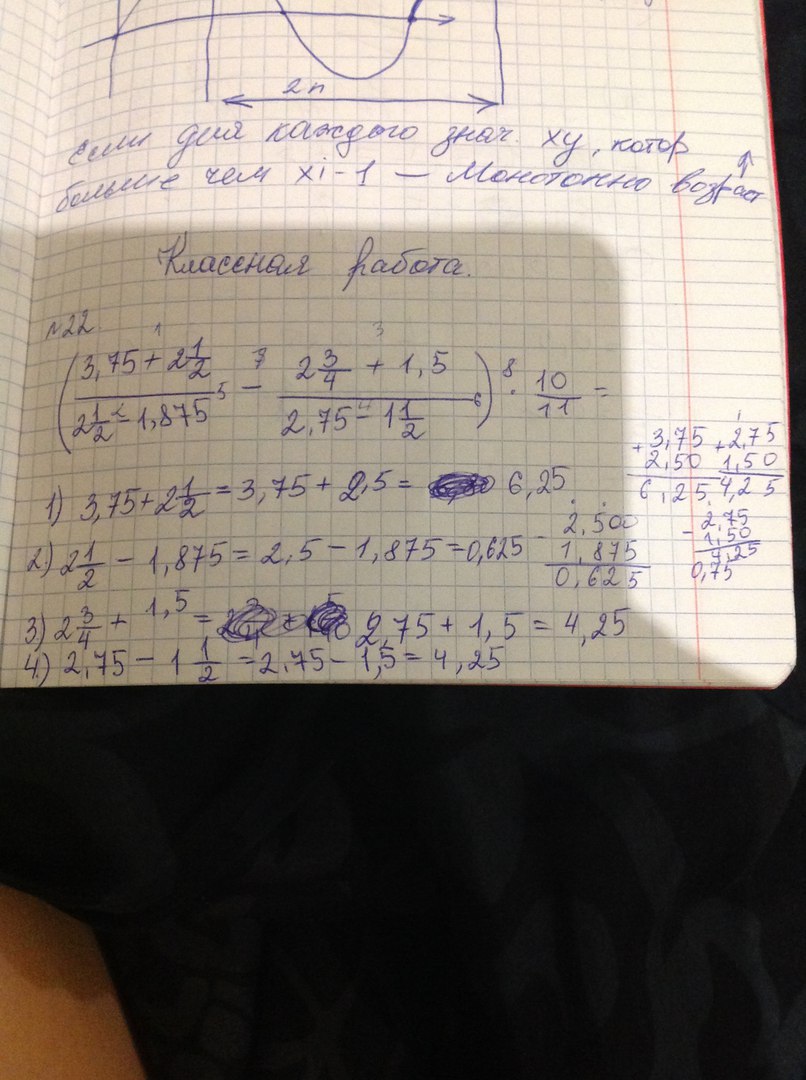 2π
Если для каждого знач. xy, котор
больше чем xi-1 — Монотонно возраст ↑
Классная работа.
№22
1 3
(3,75 + 2 1/2 / 2 1/2 - 1,875 - 2 3/4 + 1,5 / 2,75 - 1 1/2) · 10/11 =
2 5 7 4 6 8
1) 3,75 + 2 1/2 = 3,75 + 2,5 = 6,25
2) 2 1/2 - 1,875 = 2,5 - 1,875 = 0,625
3) 2 3/4 + 1,5 = 2,75 + 1,5 = 4,25
4) 2,75 - 1 1/2 = 2,75 - 1,5 = 4,25
+ 3,75
2,50
6,25
+ 2,75
1,50
4,25
- 2,500
1,875
0,625
- 2,75
1,50
4,25
0,75